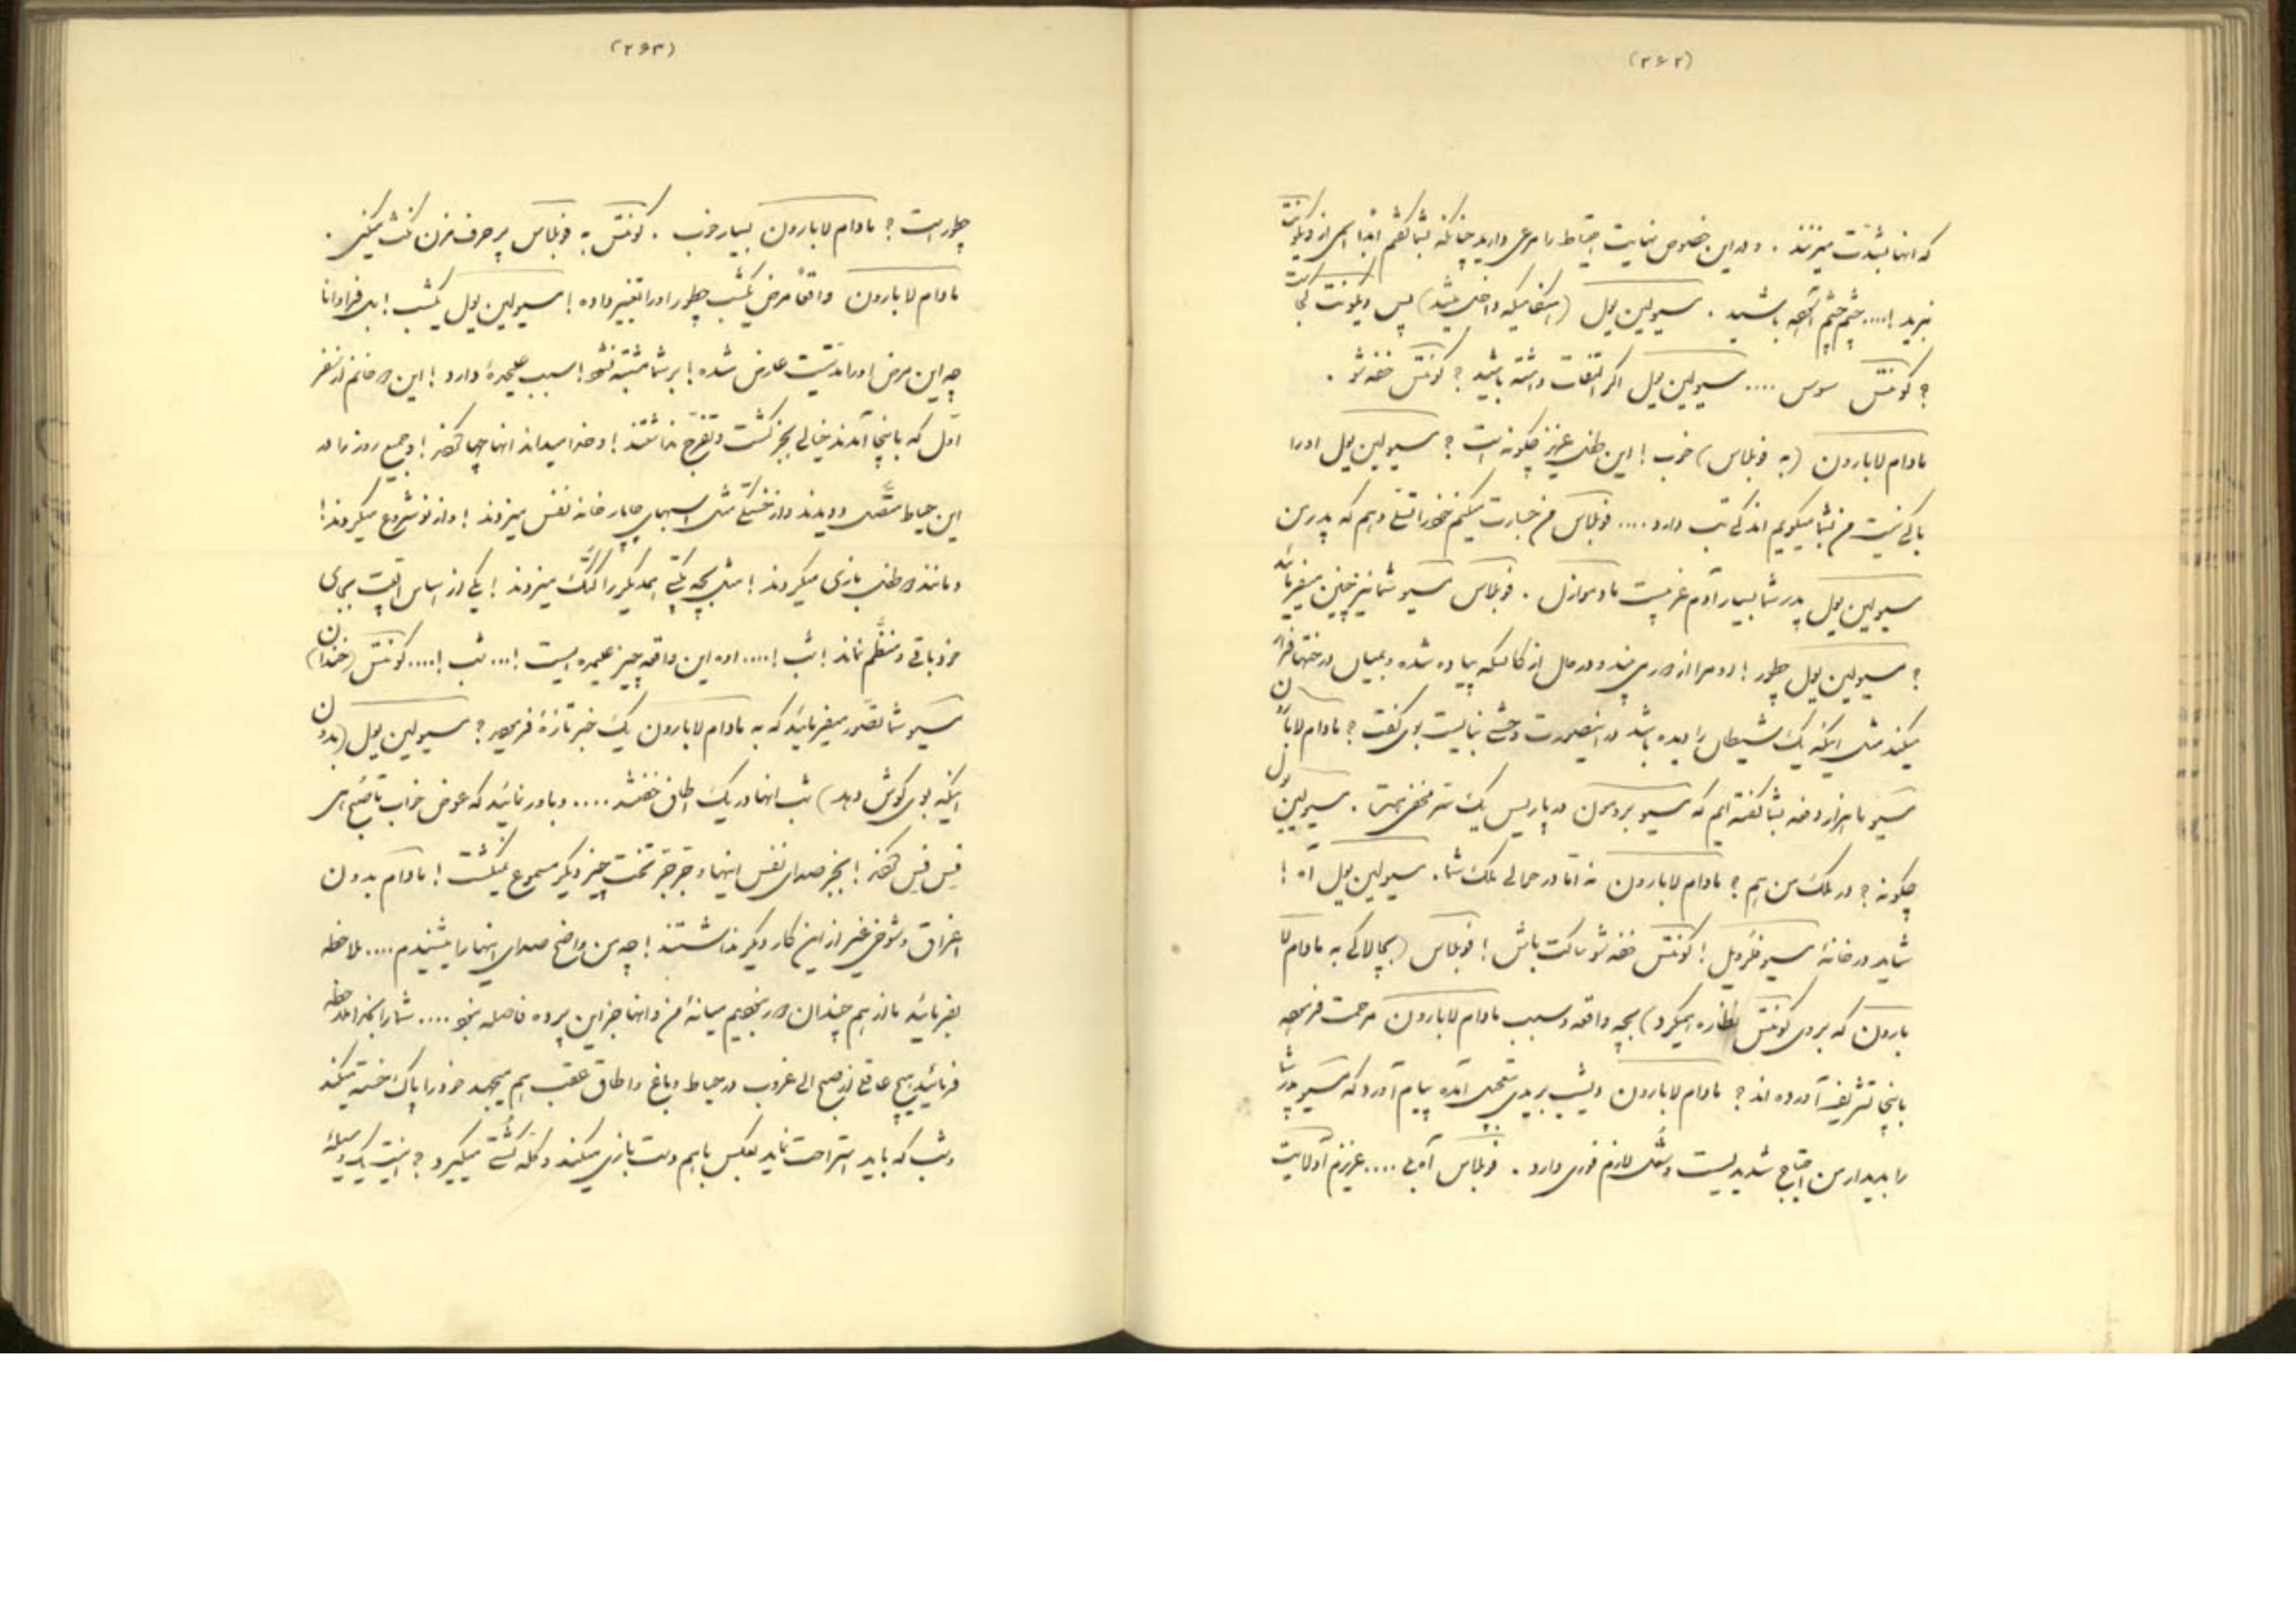 (۲۶۲)
که انها بشدت میزنند . و در این خصوص نهایت احتیاط را مرعی دارید چنانکه بشما گفتم ابدا اسمی از ویکونت
نبرید !.... چشم چشم آسوده باشید . مسیو لین یول (اشکفامیکه داخل میشد) پس ویکونت کجاست
؟ کونتس سوس .... مسیو لین یول اگر التفات داشته باشید ؟ کونتس خفه شو .
مادام لابارون (به فوبلاس) خوب ! این طفل عزیز چگونه است ؟ مسیو لین یول اورا
باکی نیست من بشما میگویم اندکی تب دارد .... فوبلاس من جسارت میکنم خود را تسلی دهم که پدر من
مسیو لین یول پدر شما بسیار آدم غریبیست مادموازل . فوبلاس مسیو شما نیز چنین میفرمائید
؟ مسیو لین یول چطور ! او مرا از دور می بیند و در حال از کالسکه پیاده شده و بمیان درختها فرار
میکند مثل اینکه یک شیطان را دیده باشد در اینصورت وحشی نبایست بوی گفت ؟ مادام لابارون
مسیو ما هزار دفعه بشما گفته ایم که مسیو بروسون در پاریس یک سر مخفی هستند . مسیو لین یول
چگونه ؟ در ملک من هم ؟ مادام لابارون نه اما در حوالی ملک شما . مسیو لین یول آه !
شاید در خانهٔ مسیو ... ! کونتس خفه شو ساکت باش ! فوبلاس (بچالاکی به مادام لا
بارون که بروی کونتس نظاره میکرد) بچه واقعه و سبب مادام لابارون مرحمت فرموده
باینجا تشریف آورده اند ؟ مادام لابارون دیشب بریدی بتعجیل آمده پیام آورد که مسیو پدر شما
را بدیدار من احتیاج شدیدیست و شغل لازم فوری دارد . فوبلاس آه بلی .... عزیزم آدلائیت
(۲۶۳)
چطور است ؟ مادام لابارون بسیار خوب . کونتس به فوبلاس پر حرف مزن کنت میکنی .
مادام لابارون واقعا مرض یکشب چطور اورا تغییر داده ! مسیو لین یول یکشب ! بلی فراوانا
چه این مرض اورا مدتیست عارض شده ! بر شما مشتبه نشود ! سبب علیحدهٔ دارد ! این دو خانم از سفر
اول که باینجا آمدند خیالی بجز گشت و تفرج نداشتند ! و خدا میداند انها چها کردند ! و جمیع روز را در
این حیاط متصل دویدند و از خستگی مثل اسبهای چاپار خانه نفس میزدند ! و از نو شروع میکردند !
و مانند دو طفل بازی میکردند ! مثل بچه ... همدیگر را کتک میزدند ! یکی از اساس البیت بجای
خود باقی و منظم نماند ! شب !.... اوه این واقعه چیز علیحده ایست !... شب !.... کونتس (خندان)
مسیو شما تصور میفرمائید که به مادام لابارون یک خبر تازهٔ فرمودید ؟ مسیو لین یول (بدون
اینکه بوی گوش دهد) شب انها در یک اطاق خفتند .... و باور نمائید که عوض خواب تا صبح ...
فس فس کردند ! بجز صدای نفس اینها و جرجر تخت چیز دیگر مسموع نمیگشت ! مادام بدون
اغراق و شوخی غیر از این کار دیگر نداشتند ! چه من واضح صدای اینها را میشنیدم .... ملاحظه
بفرمائید ما از هم چندان دور نبودیم میانهٔ من و انها جز این پرده فاصله نبود .... شما را بخدا ملاحظه
فرمائید هیچ عاقلی از صبح الی غروب در حیاط و باغ و اطاق عقب هم میجهد خود را پاک خسته میکند
و شب که باید استراحت نماید بعکس باهم دست بازی میکنند و کله کشتی میگیرد ؟ اینست یک وسیلهٔ